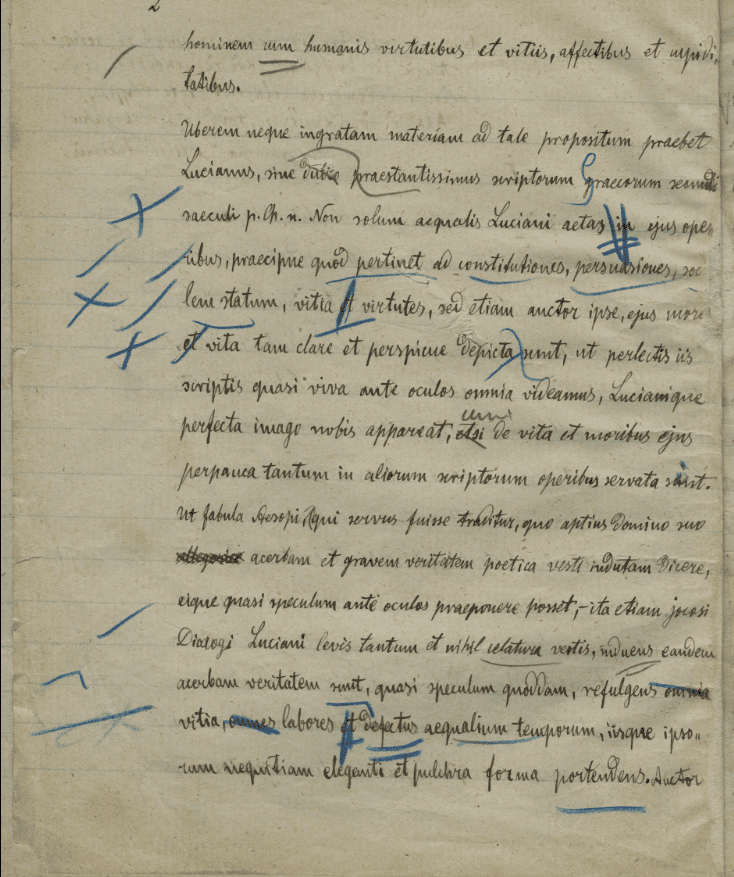 2
hominem cum humanis virtutibus et vitiis, affectibus et cupidi,
tatibus.
Uberem neque ingratam materiam ad tale propositum praebet
Lucianus, sine dubio praestantissimus scriptorum graecorum secundi
saeculi p. Ch. n. Non solum aequalis Luciani aetas in ejus ope
ribus, praecipue quod pertinet ad constitutiones, persuasiones, soc
lem statum, vitia et virtutes, sed etiam auctor ipse, ejus mor
et vita tam clare et perspicue depicta sunt, ut perlectis iis
scriptis quasi viva ante oculos omnia videamus, Lucianique
cum
perfecta imago nobis appareat, etsi de vita et moribus ejus
perpauca tantum in aliorum scriptorum operibus servata sint.
Ut fabula Aesopi, qui servus fuisse traditur, quo aptius domino suo
allegorice acerbam et gravem veritatem poetica vesti indutam dicere,
eique quasi speculum ante oculos praeponere posset, - ita etiam jocosi
Dialogi Luciani levis tantum et nihil celatura vestis, induens eandem
acerbam veritatem sunt, quasi speculum quoddam, refulgens omnia
vitia, omnes labores et defectus aequalium temporum, iisque ipso„
rum nequitiam eleganti et pulchra forma portendens. Auctor